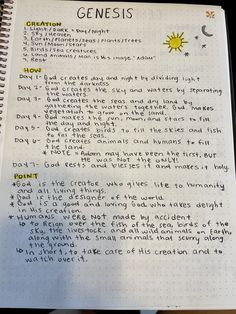 GENESIS
CREATION
1. Light/Dark = Day/Night
2. Sky/Heaven
3. Earth/Planets/Seas/Plants/Trees
4. Sun/Moon/Stars
5. Birds/Sea creatures
6. Land Animals/Man in His image "Adam"
7. Rest
HOW
Day 1- God creates day and night by dividing light
from the darkness.
Day 2- God creates the sky and waters by separating
the waters.
Day 3- God creates the seas and dry land by
gathering the waters together. God makes
vegetation to grow on the land.
Day 4- God makes the sun, moon and stars to fill
the day and night sky.
Day 5- God creates birds to fill the skies and fish
to fill the seas.
Day 6- God creates animals and humans to fill
the land.
* NOTE = Adam may have been the first, BUT
He was NOT the ONLY!
Day 7- God rests and blesses it and makes it holy.
POINT
*God is the creator who gives life to humanity
and all living things.
*God is the designer of the world.
*God is a good and loving God who takes delight
in His creation.
*Humans were not made by accident
↳ to reign over the fish of the sea, birds of the
sky, the livestock, and all wild animals on Earth,
along with the small animals that scurry along
the ground.
↳ in short, to take care of His creation and to
watch over it.